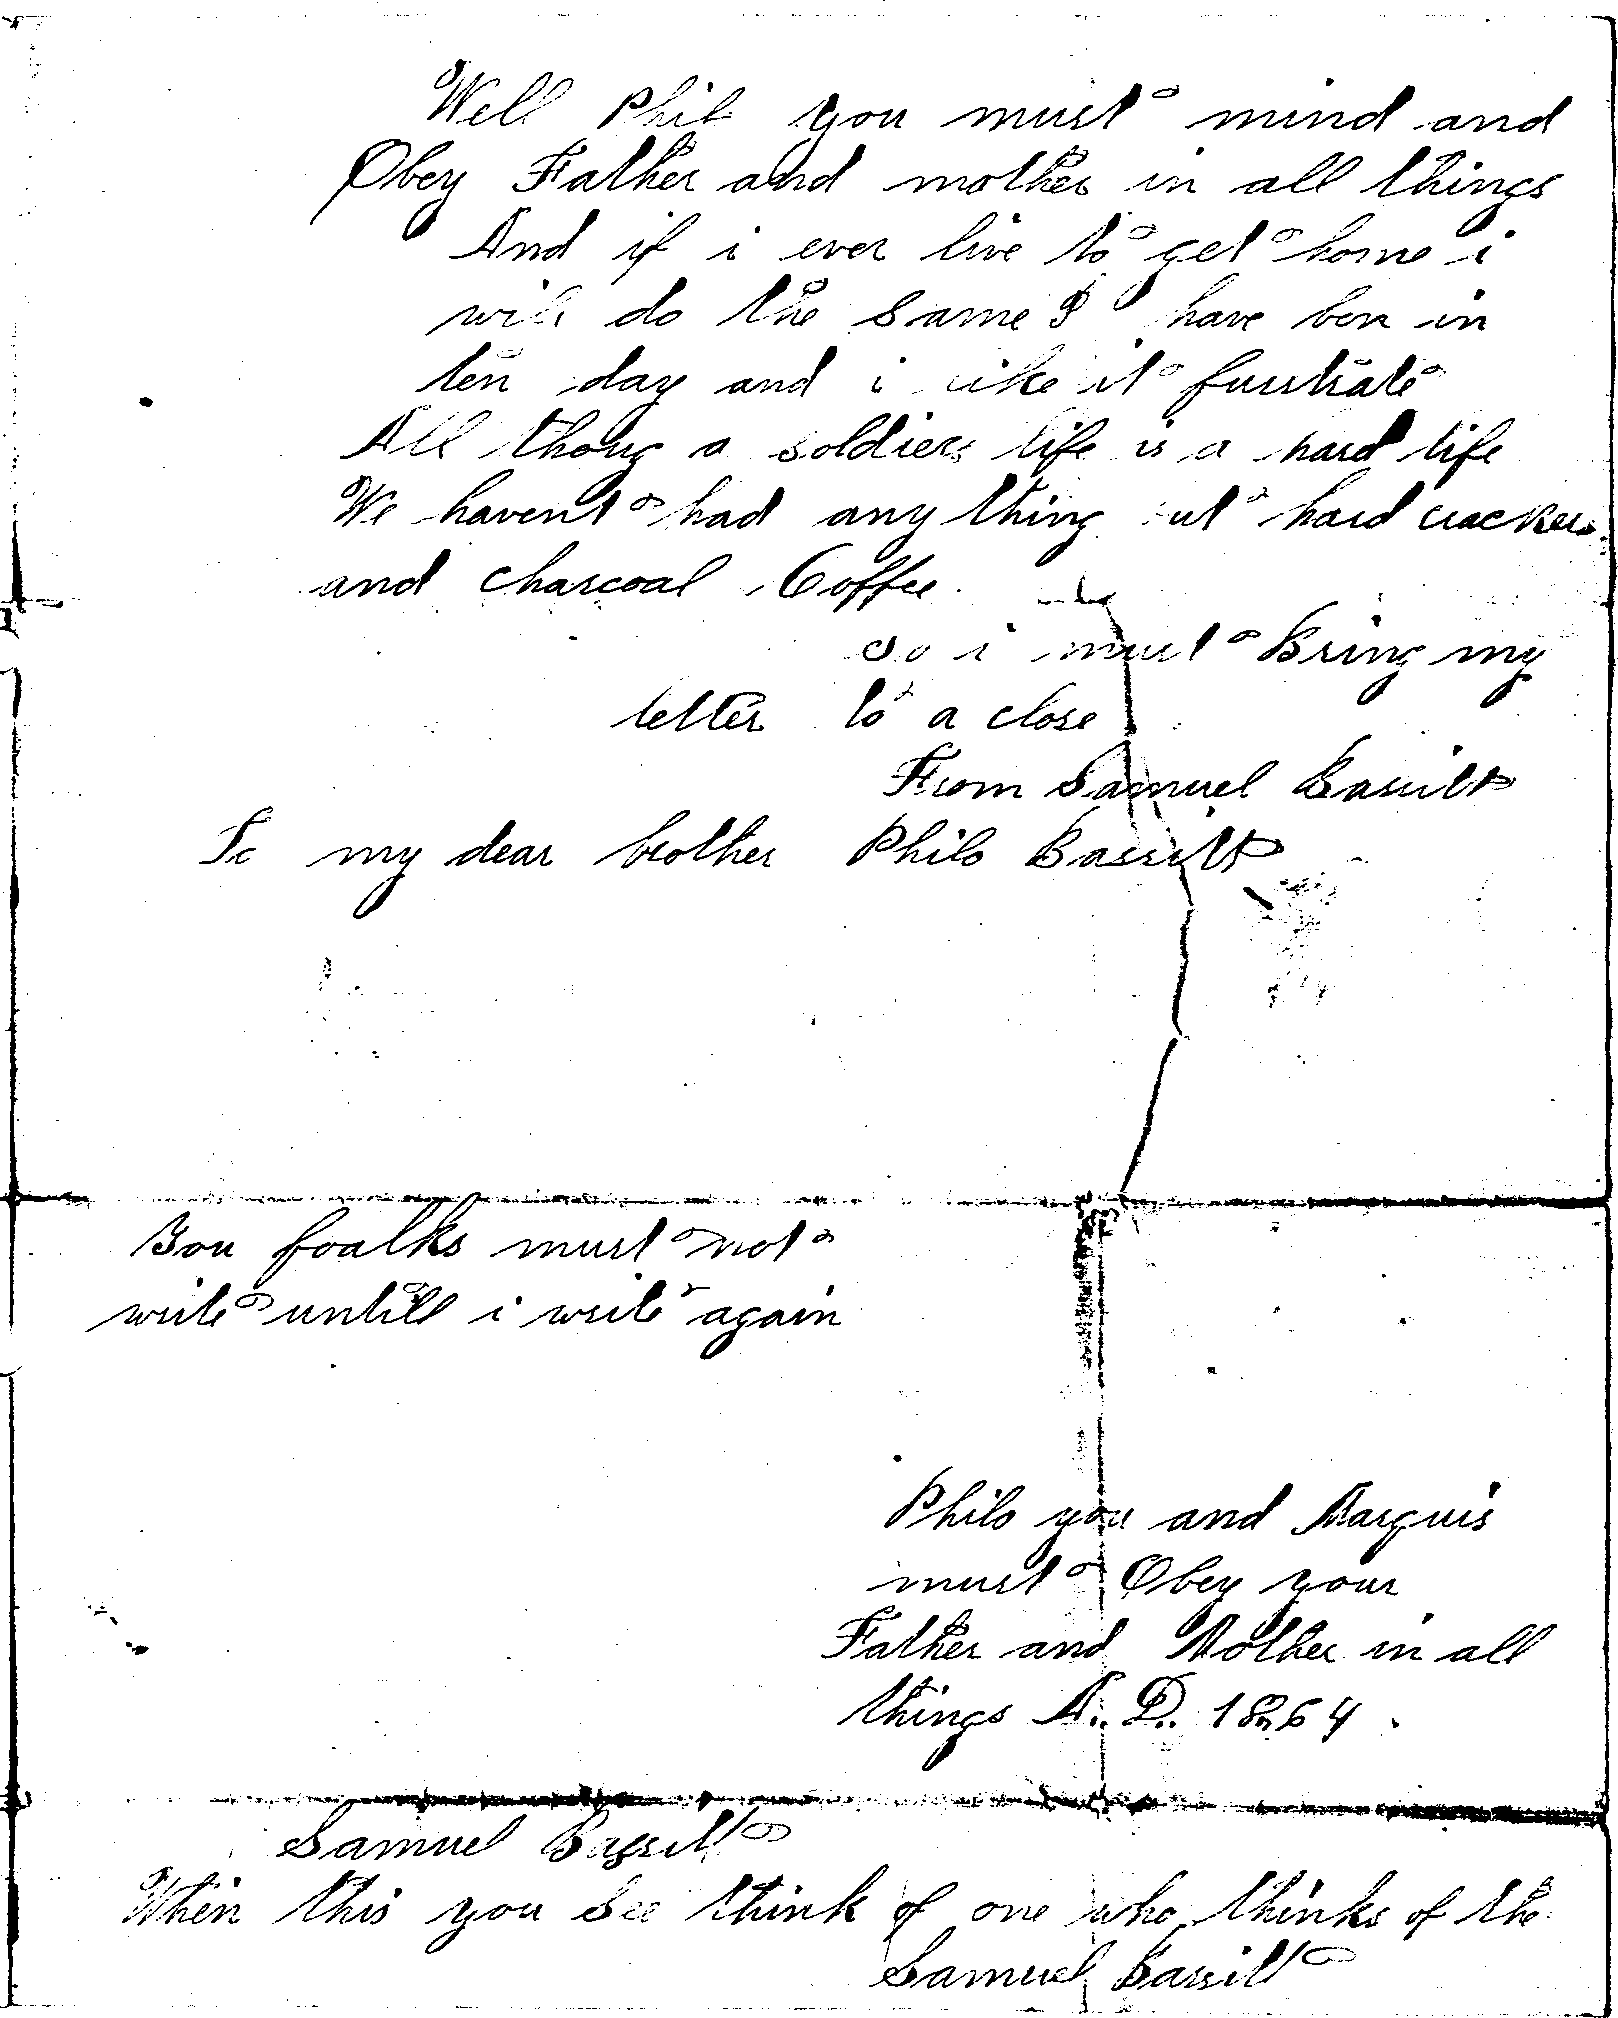 Well Phil you must mind and
Obey Father and mother in all things
And if i ever live to get home i
will do the same I have ben in
ten day and i like it furstrate
All thoug a soldiers life is a hard life
We havent had any thing but hard crackers
and charcoal Coffee.
So i must Bring my
letter to a close
From Samuel Bassitt
To my dear brother Philo Bassitt
You foalks must not
write untill i write again
Philo you and Marquis
must Obey your
Father and Mother in all
things A.. D.. 1864
Samuel Bassitt
When this you see think of one who thinks of the
Samuel Bassitt